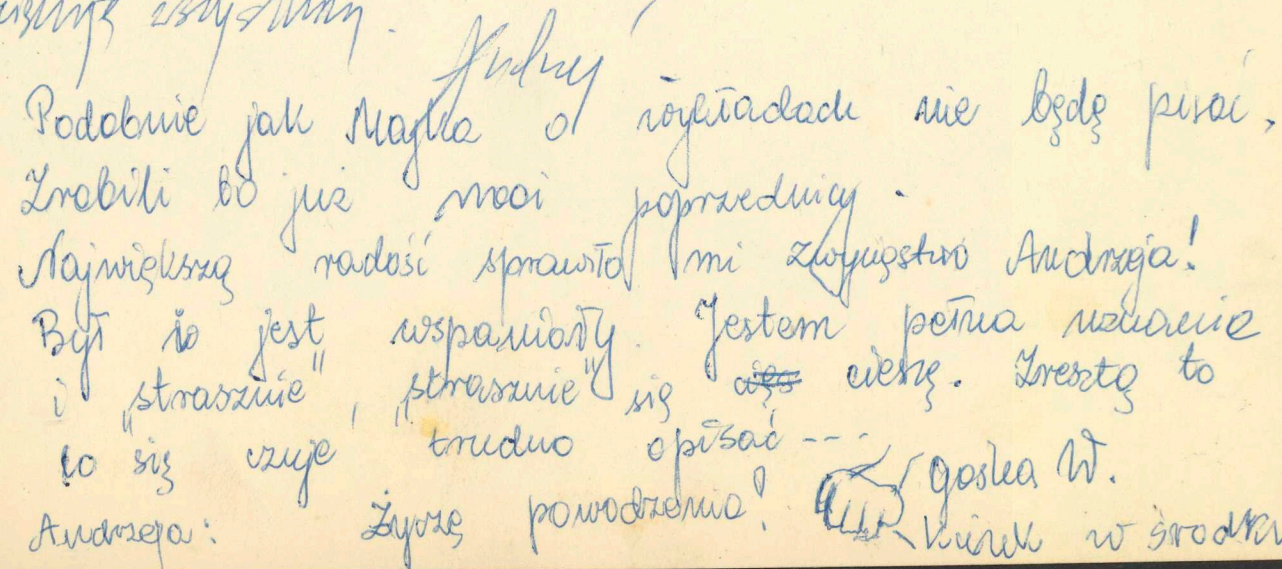 Andrzej
Podobnie jak Majka o wykładach nie będę pisać,
Zrobili to już moi poprzednicy.
Największą radość sprawiło mi zwycięstwo Andrzeja!
Był i jest wspaniały. Jestem pełna uznania
i "strasznie", "strasznie" się cieszę. Zresztą to
co się czuje trudno opisać ---
Gośka W.
Andrzeja: Życzę powodzenia!
w środku